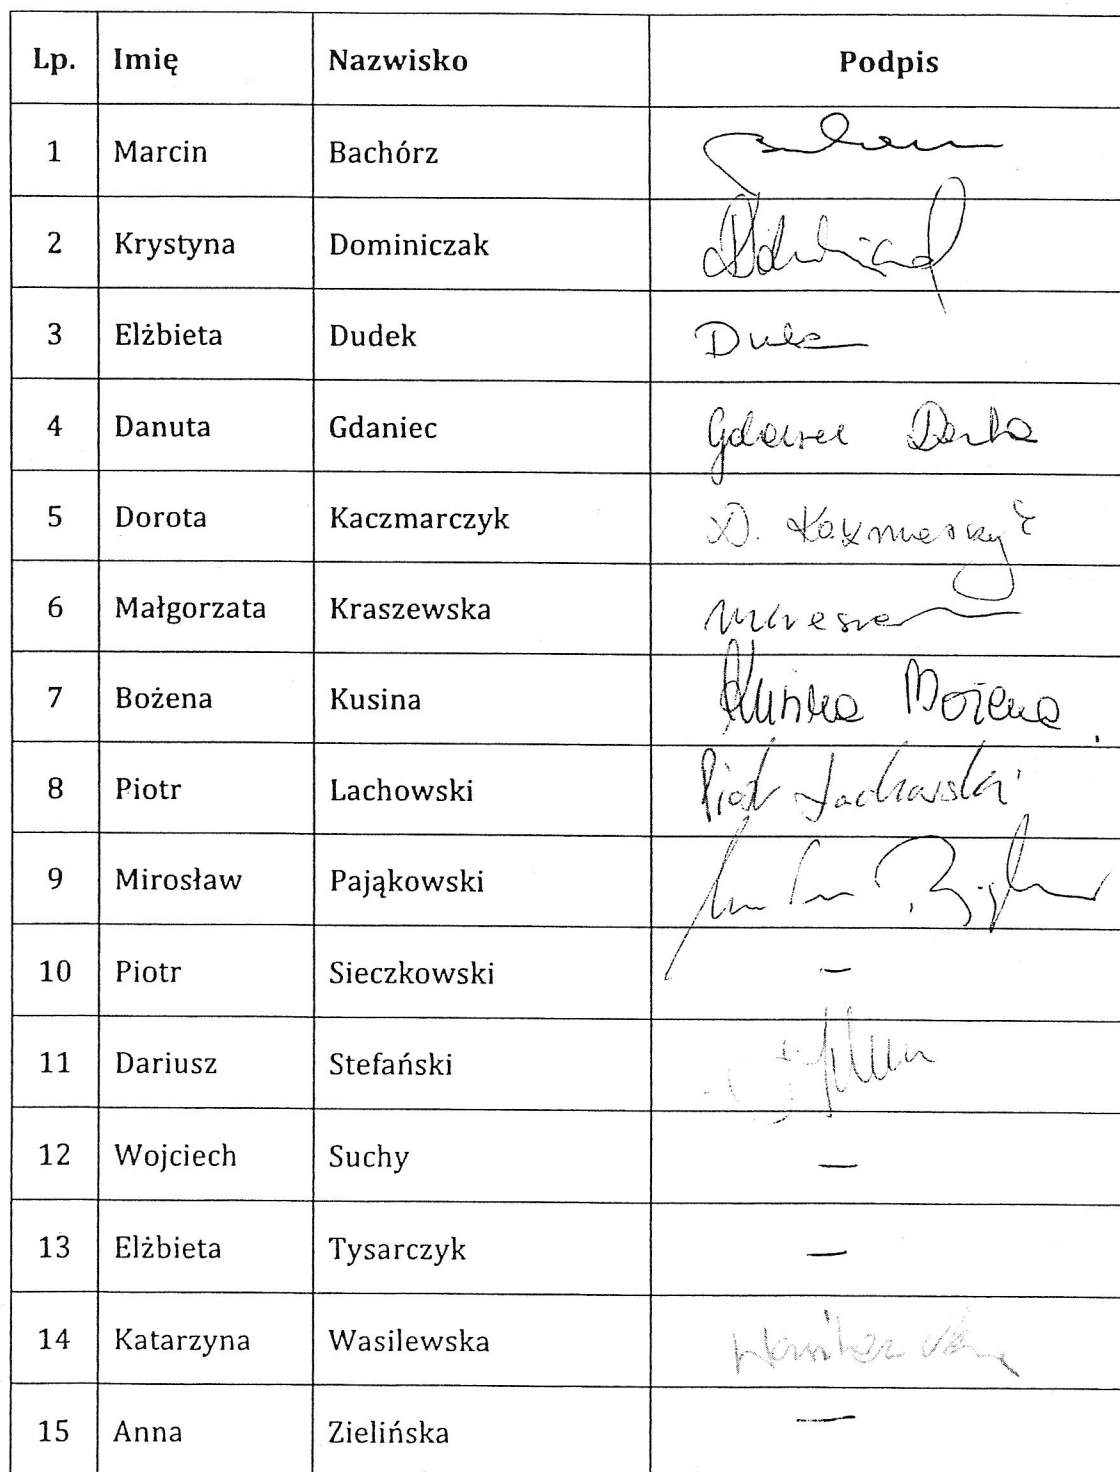 Lp. Imię Nazwisko Podpis
1 Marcin Bachórz
2 Krystyna Dominiczak
3 Elżbieta Dudek
4 Danuta Gdaniec
5 Dorota Kaczmarczyk D.
6 Małgorzata Kraszewska
7 Bożena Kusina Bożena
8 Piotr Lachowski Piotr Lachowski
9 Mirosław Pająkowski
10 Piotr Sieczkowski —
11 Dariusz Stefański
12 Wojciech Suchy —
13 Elżbieta Tysarczyk —
14 Katarzyna Wasilewska
15 Anna Zielińska —